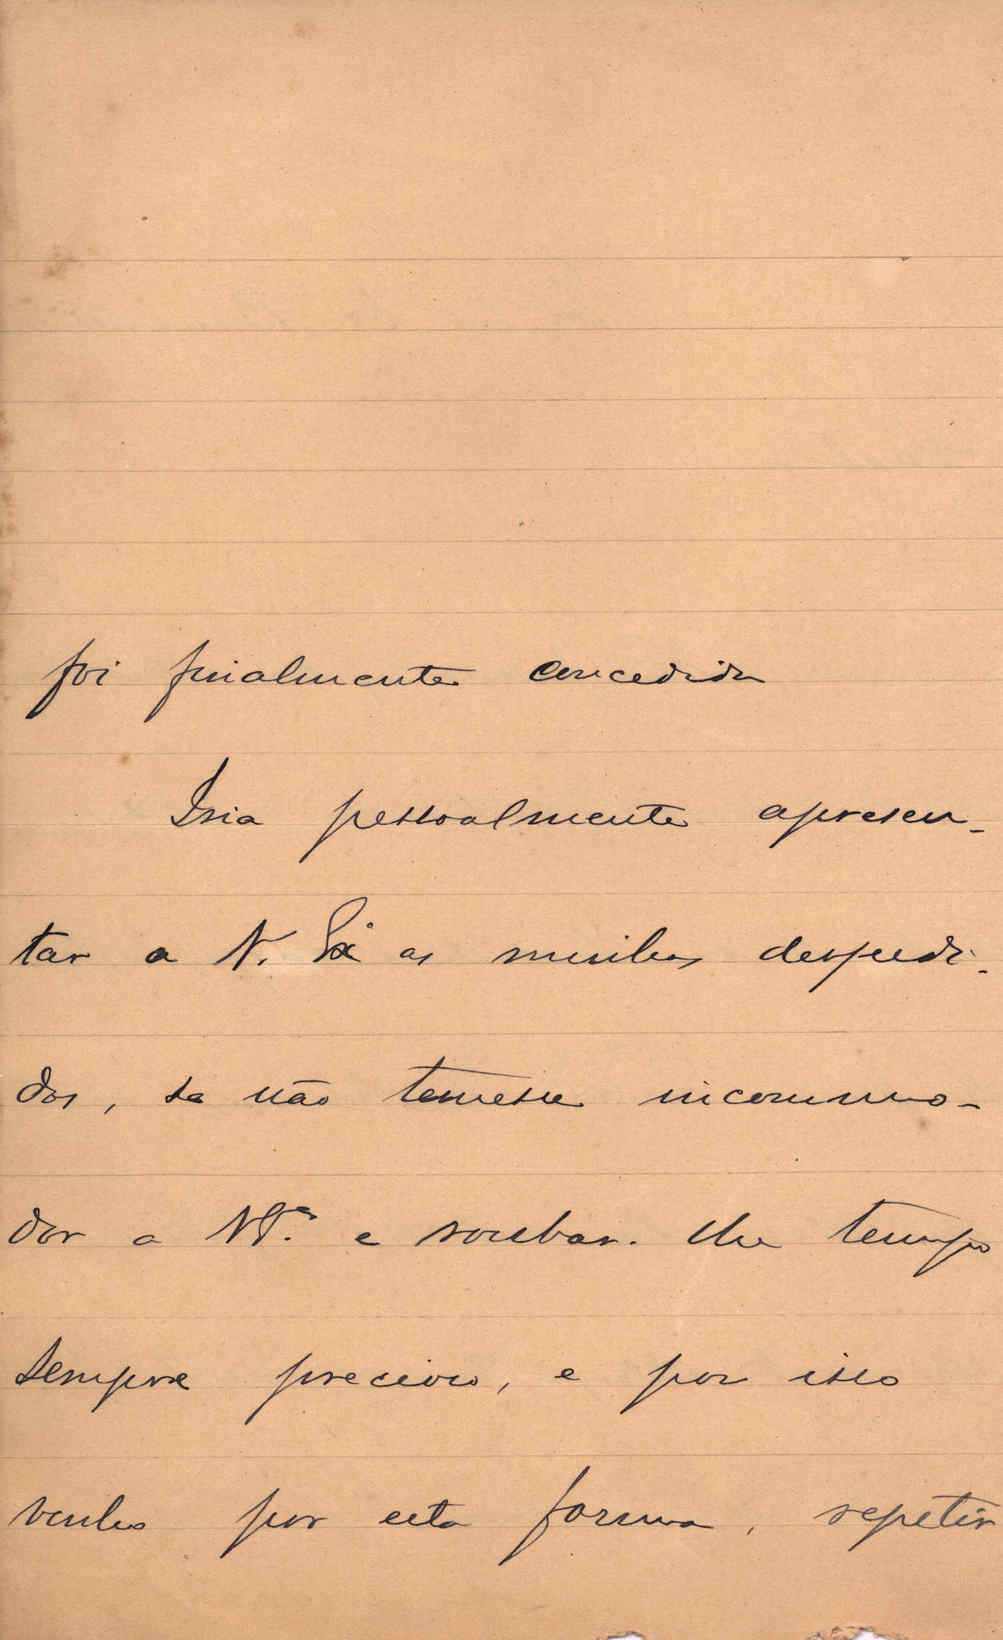 foi finalmente concedida
Iria pessoalmente apresen-
tar a V. Exª as minhas despedi-
das, se não temesse incommo-
dar a V. Eª. e roubar-lhe tempo
sempre precioso, e por isso
venho por esta forma, repetir